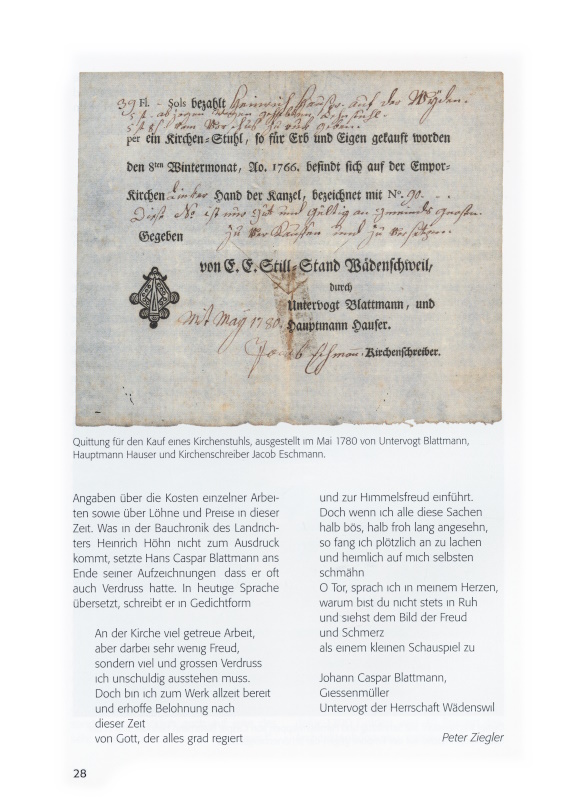 39 Fl. - Sols bezahlt Heinrich Hauser auf der Wyden.
per ein Kirchen-Stuhl, so für Erb und Eigen gekauft worden
den 8ten Wintermonat, Ao. 1766. befindt sich auf der Empor-
Kirchen Linker Hand der Kanzel, bezeichnet mit No. 90.
Dise No. ist nur gut und gültig an gmeinds gnossen
Gegeben zu verkauffen und zu versetzen.
von E. E. Still-Stand Wädenschweil,
durch
Untervogt Blattmann, und
mit May 1780. Hauptmann Hauser.
Jacob Eschman. Kirchenschreiber.
Quittung für den Kauf eines Kirchenstuhls, ausgestellt im Mai 1780 von Untervogt Blattmann,
Hauptmann Hauser und Kirchenschreiber Jacob Eschmann.
Angaben über die Kosten einzelner Arbei-
ten sowie über Löhne und Preise in dieser
Zeit. Was in der Bauchronik des Landrich-
ters Heinrich Höhn nicht zum Ausdruck
kommt, setzte Hans Caspar Blattmann ans
Ende seiner Aufzeichnungen dass er oft
auch Verdruss hatte. In heutige Sprache
übersetzt, schreibt er in Gedichtform
An der Kirche viel getreue Arbeit,
aber darbei sehr wenig Freud,
sondern viel und grossen Verdruss
ich unschuldig ausstehen muss.
Doch bin ich zum Werk allzeit bereit
und erhoffe Belohnung nach
dieser Zeit
von Gott, der alles grad regiert
und zur Himmelsfreud einführt.
Doch wenn ich alle diese Sachen
halb bös, halb froh lang angesehn,
so fang ich plötzlich an zu lachen
und heimlich auf mich selbsten
schmähn
O Tor, sprach ich in meinem Herzen,
warum bist du nicht stets in Ruh
und siehst dem Bild der Freud
und Schmerz
als einem kleinen Schauspiel zu
Johann Caspar Blattmann,
Giessenmüller
Untervogt der Herrschaft Wädenswil
Peter Ziegler
28